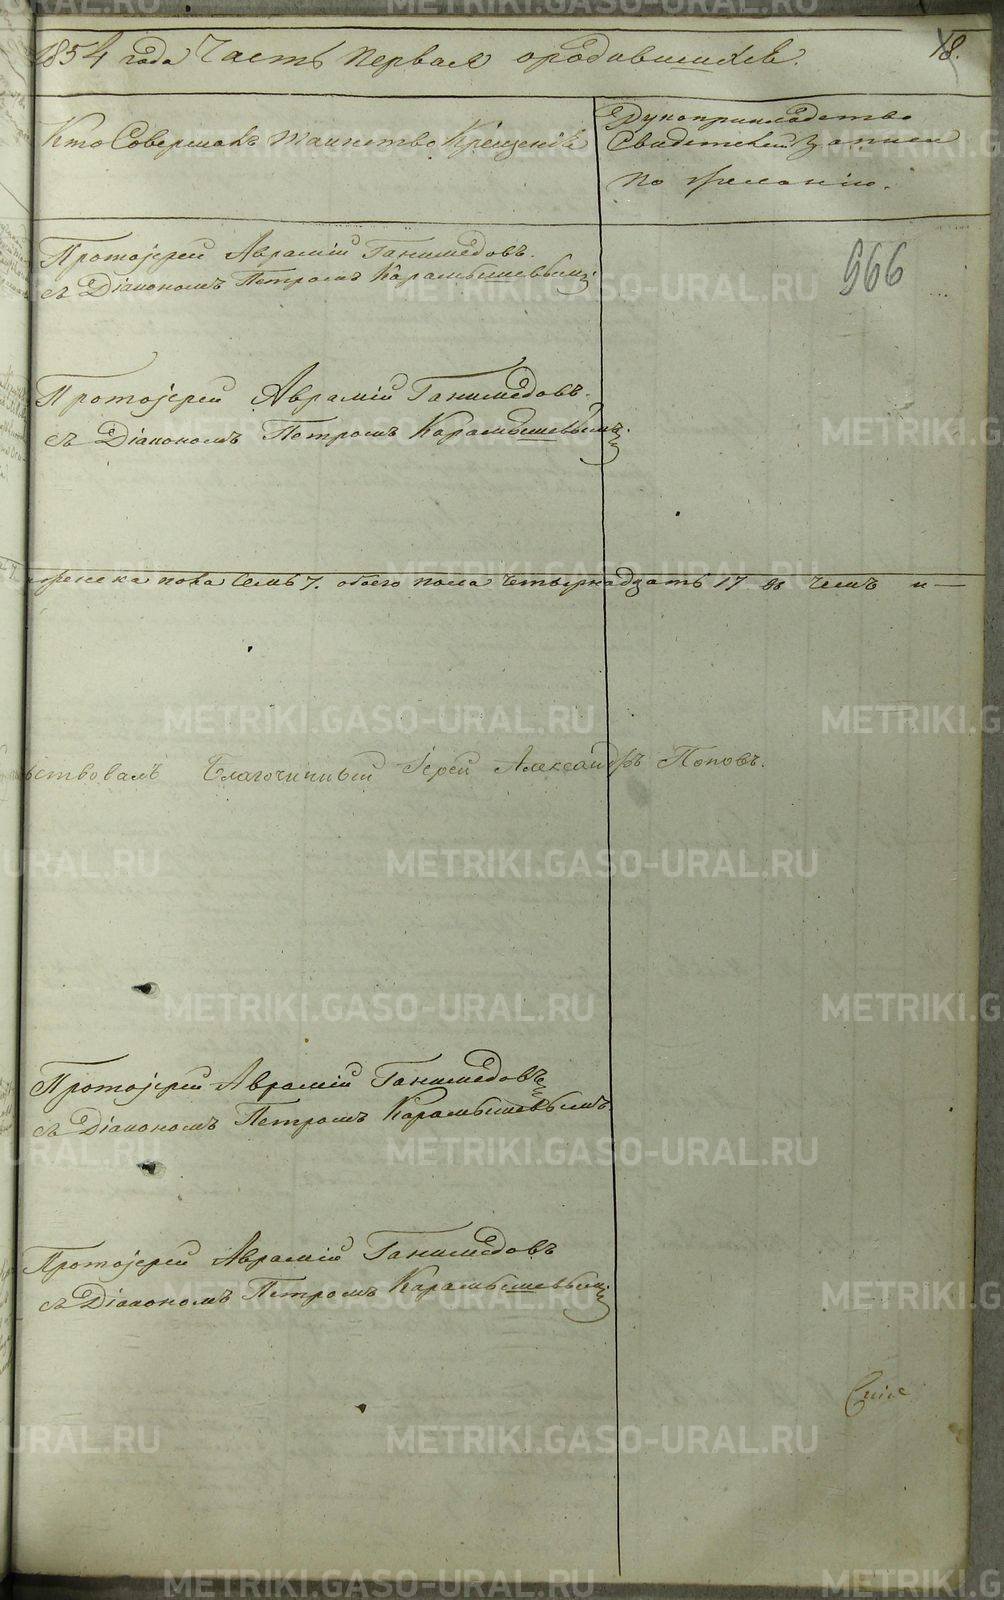 1854 года Часть первая ородившихся.
18.
Кто Совершалъ таинство Крещенія
Рукоприкладство
Свидетелей записи
по желанію.
Протоіерей Аврамій Ганимедовъ.
съ Діакономъ Петромъ Карамышевымъ
966
Протоіерей Аврамій Ганимедовъ.
съ Діакономъ Петромъ Карамышевымъ.
женска пола Семь 7. обоего пола четырнадцать 17 въ чемъ и—
ствовалъ Благочинный Іерей Александръ Поповъ.
Протоіерей Аврамій Ганимедовъ
съ Діакономъ Петромъ Карамышевымъ
Протоіерей Аврамій Ганимедовъ
съ Діакономъ Петромъ Карамышевымъ
METRIKI.GASO-URAL.RU